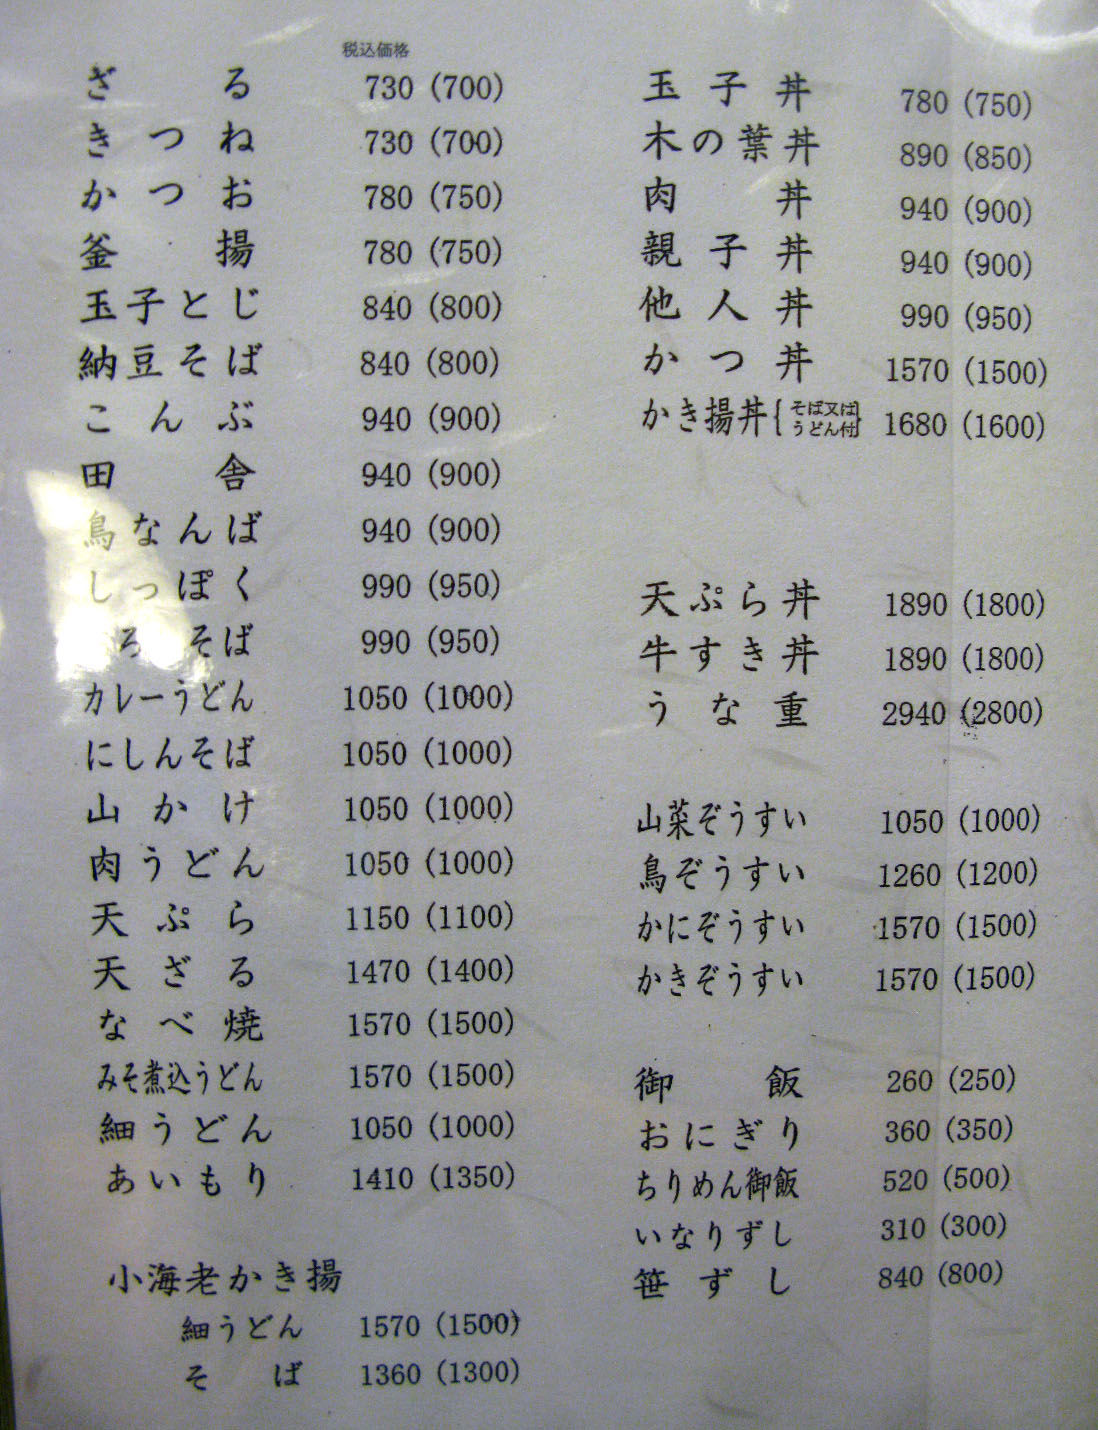 税込価格
ざる 730 (700)
きつね 730 (700)
かつお 780 (750)
釜揚 780 (750)
玉子とじ 840 (800)
納豆そば 840 (800)
こんぶ 940 (900)
田舎 940 (900)
鳥なんば 940 (900)
しっぽく 990 (950)
そば 990 (950)
カレーうどん 1050 (1000)
にしんそば 1050 (1000)
山かけ 1050 (1000)
肉うどん 1050 (1000)
天ぷら 1150 (1100)
天ざる 1470 (1400)
なべ焼 1570 (1500)
みそ煮込うどん 1570 (1500)
細うどん 1050 (1000)
あいもり 1410 (1350)
小海老かき揚
細うどん 1570 (1500)
そば 1360 (1300)
玉子丼 780 (750)
木の葉丼 890 (850)
肉丼 940 (900)
親子丼 940 (900)
他人丼 990 (950)
かつ丼 1570 (1500)
かき揚丼{そば又はうどん付} 1680 (1600)
天ぷら丼 1890 (1800)
牛すき丼 1890 (1800)
うな重 2940 (2800)
山菜ぞうすい 1050 (1000)
鳥ぞうすい 1260 (1200)
かにぞうすい 1570 (1500)
かきぞうすい 1570 (1500)
御飯 260 (250)
おにぎり 360 (350)
ちりめん御飯 520 (500)
いなりずし 310 (300)
笹ずし 840 (800)